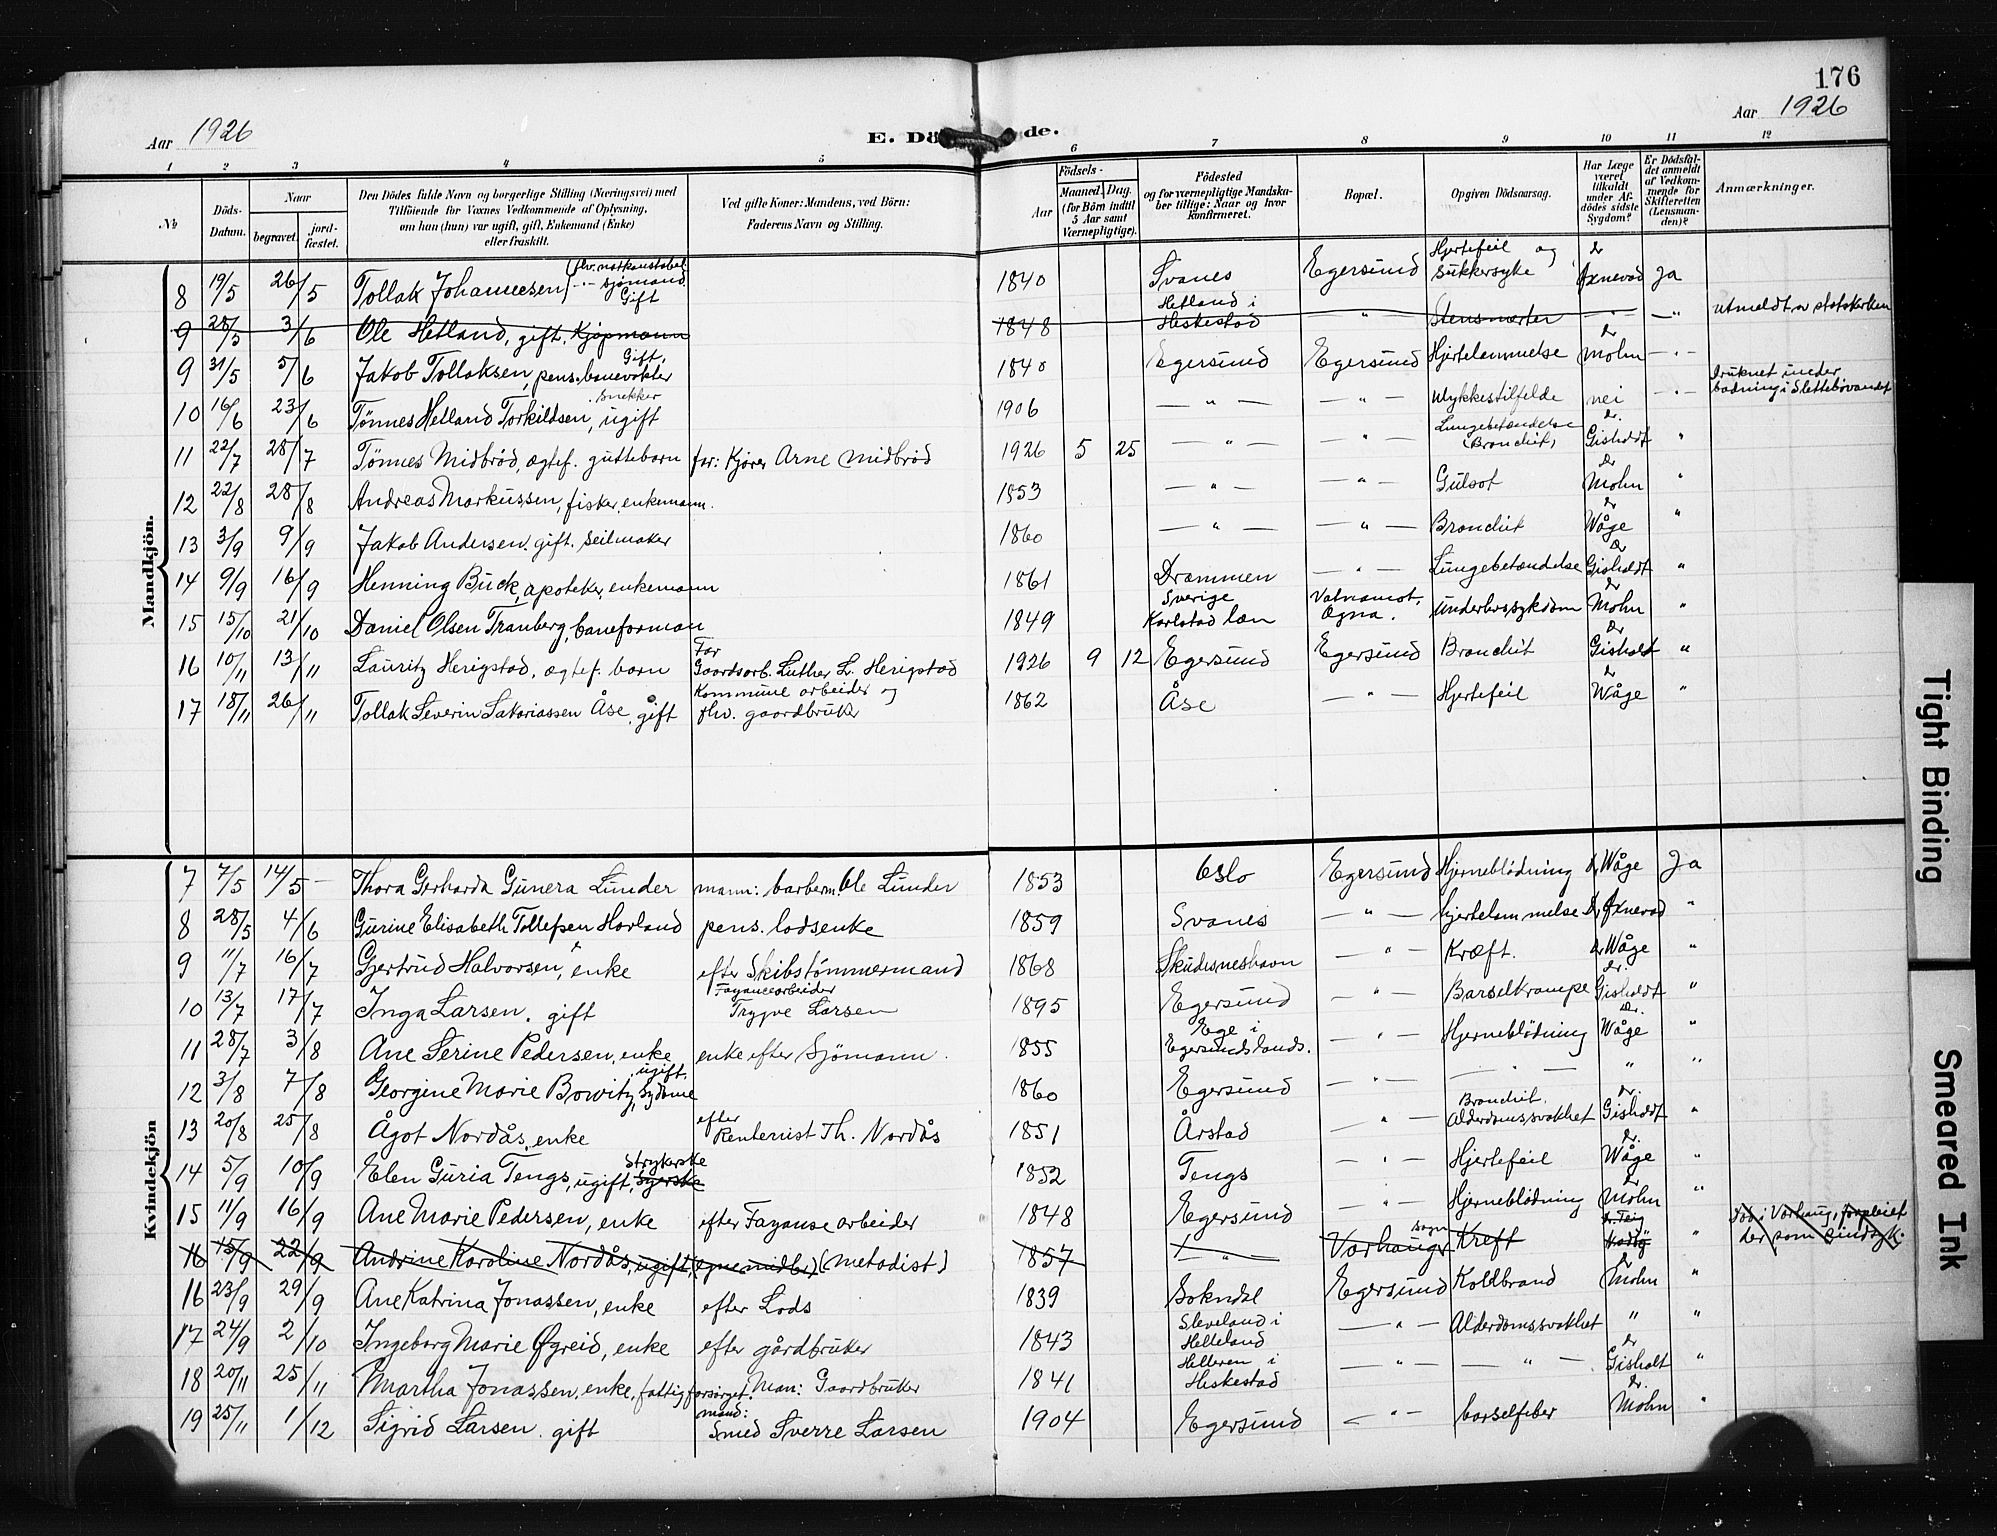 176
Aar 1926
E. Dö de.
Aar 1926
1 2 3 4 5 6 7 8 9 10 11 12
No
Döds-Datum.
Naar
begravet.
jord-fæstet.
Den Dödes fulde Navn og borgerlige Stilling (Næringsvei) med
Tilföiende for Voxnes Vedkommende af Oplysning,
om han (hun) var ugift, gift, Enkemand (Enke)
eller fraskilt.
Ved gifte Koner: Mandens, ved Börn:
Faderens Navn og Stilling.
Födsels-
Aar
Maaned. Dag.
(for Börn indtil
5 Aar samt
Værnepligtige).
Födested
og for værnepligtige Mandska-
ber tillige: Naar og hvor
konfirmeret.
Bopæl.
Opgiven Dödsaarsag.
Har Læge
været
tilkaldt
under Af-
dödes sidste
Sygdom?
Er Dödsfal-
det anmeldt
af Vedkom-
mende for
Skifteretten
(Lensman-
den)?
Anmærkninger.
Mandkjön.
8 19/5 26/5 Tollak Johannesen Sjømand Gift 1840 Svanes Egersund Hjertefeil og sukkersyke Dr Axnevad Ja
9 28/5 3/6 Ole Hetland, gift. Kjøpmann 1848 Hetland i Heskestad — " — — " — utmeldt av statskirken
9 31/5 5/6 Jakob Tollaksen, pens. banevokter Gift, 1840 Egersund Egersund Hjertelammelse Dr Mohn — " —
10 16/6 23/6 Tønnes Hetland Torkildsen, ugift snekker 1906 — " — — " — Ulykkestilfelde nei — " — Druknet under badning i Slettebøvandet
11 22/7 28/7 Tønnes Midbrød, ægtef. guttebarn far: Kjører Arne Midbrød 1926 5 25 — " — — " — Lungebetændelse (Bronchit) Dr. Gisholdt "
12 22/8 28/8 Andreas Markussen, fisker, enkemann. 1853 — " — — " — Gulsot Dr Mohn "
13 3/9 9/9 Jakob Andersen. gift. seilmaker 1860 — " — — " — Bronchit Dr Wåge "
14 9/9 16/9 Henning Buck, apoteker, enkemann 1861 Drammen — " — Lungebetændelse Dr Gisholdt "
15 15/10 21/10 Daniel Olsen Tranberg, baneforman 1849 Sverige Karlstad læn Vatnamot, Ogna. underlivssykdom Dr Mohn "
16 10/11 13/11 Lauritz Herigstad, ægtef. barn Far Gaardsarb. Luther L. Herigstad 1926 9 12 Egersund Egersund Bronchit Dr Gisholdt "
17 18/11 26/11 Tollak Severin Sakariassen Åse, gift Kommune arbeider og fhv. gaardbruker 1862 Åse — " — Hjertefeil Dr Wåge "
Kvindekjön
7 7/5 14/5 — Thora Gerharda Gunera Lunder mann: barberm. Ole Lunder 1853 Oslo Egersund Hjerneblödning Dr Wåge Ja
8 28/5 4/6 Gurine Elisabeth Tollefsen Havland pens. lodsenke 1859 Svanes — " — hjertelammelse Dr Axnevad "
9 11/7 16/7 Gjertrud Halvorsen, enke efter Skibstømmermand 1868 Skudesneshavn — " — Kræft. Dr Wåge "
10 13/7 17/7 Inga Larsen. gift Fayancearbeider Trygve Larsen 1895 Egersund — " — Barselkrampe Dr. Gisholdt "
11 28/7 3/8 Ane Serine Pedersen, enke enke efter Sjömann. 1855 Ege i Egersundslands. — " — Hjerneblödning Dr. Wåge "
12 3/8 7/8 Georgine Marie Bowitz, ugift. Sydame 1860 Egersund — " — — " — " "
13 20/8 25/8 Ågot Nordås, enke efter Rentenist Th. Nordås 1851 Årstad " — Bronchit. Alderdomssvakhet Dr. Gisholdt "
14 5/9 10/9 Elen Guria Tengs, ugift, Syerske Strykerske 1852 Tengs — " — Hjertefeil Dr. Wåge "
15 11/9 16/9 Ane Marie Pedersen, enke efter Fayanse arbeider 1848 Egersund " — Hjerneblödning Dr Mohn "
16 15/9 22/9 Andrine Karoline Nordås, ugift, (egne midler) (metodist) 1857 — " — Varhaug sogn Kreft Dr. Teig "
Död i Varhaug, forpleiet der som sindsyk.
16 23/9 29/9 Ane Katrina Jonassen, enke efter Lods 1839 Sokndal Egersund Koldbrand Dr Mohn "
17 24/9 2/10 Ingeborg Marie Øgreid, enke efter gårdbruker 1843 Sleveland i Helleland — " — Alderdomssvakhet " "
18 20/11 25/11 Martha Jonassen, enke, fattigforsørget. Man: Gaardbruker 1841 Helleren i Heskestad — " — — " — Dr Gisholt "
19 25/11 1/12 Sigrid Larsen. gift mand: Smed Sverre Larsen 1904 Egersund — " — barselfeber Dr. Mohn "
Tight Binding
Smeared Ink